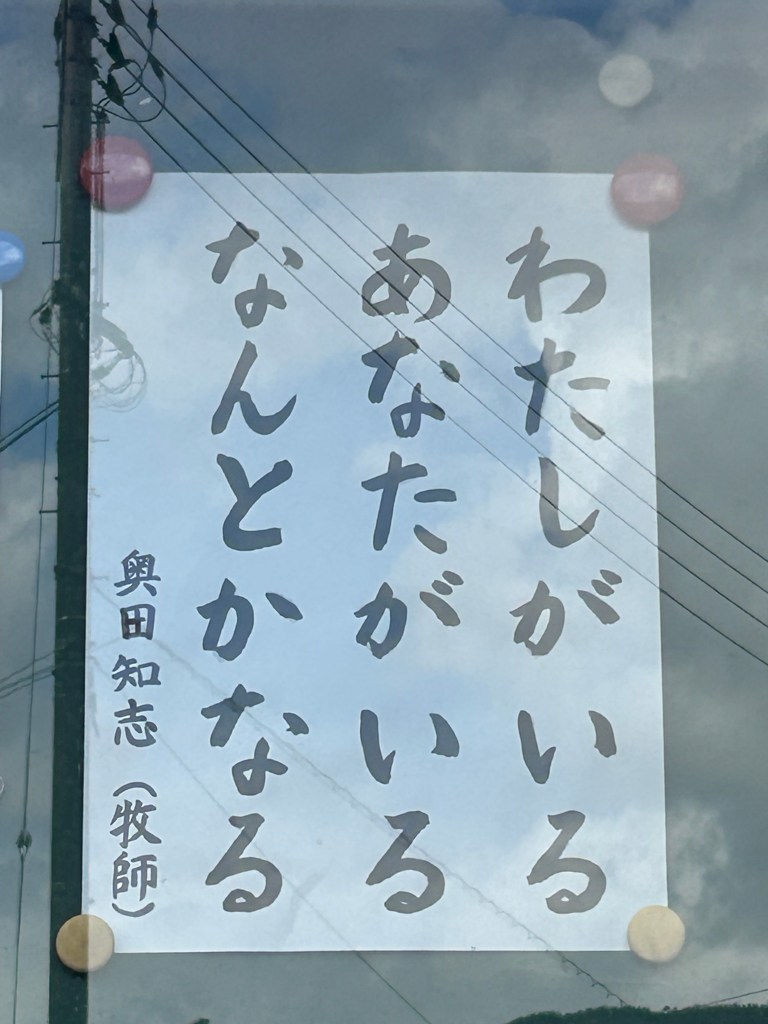 わたしがいる
あなたがいる
なんとかなる
奥田知志（牧師）